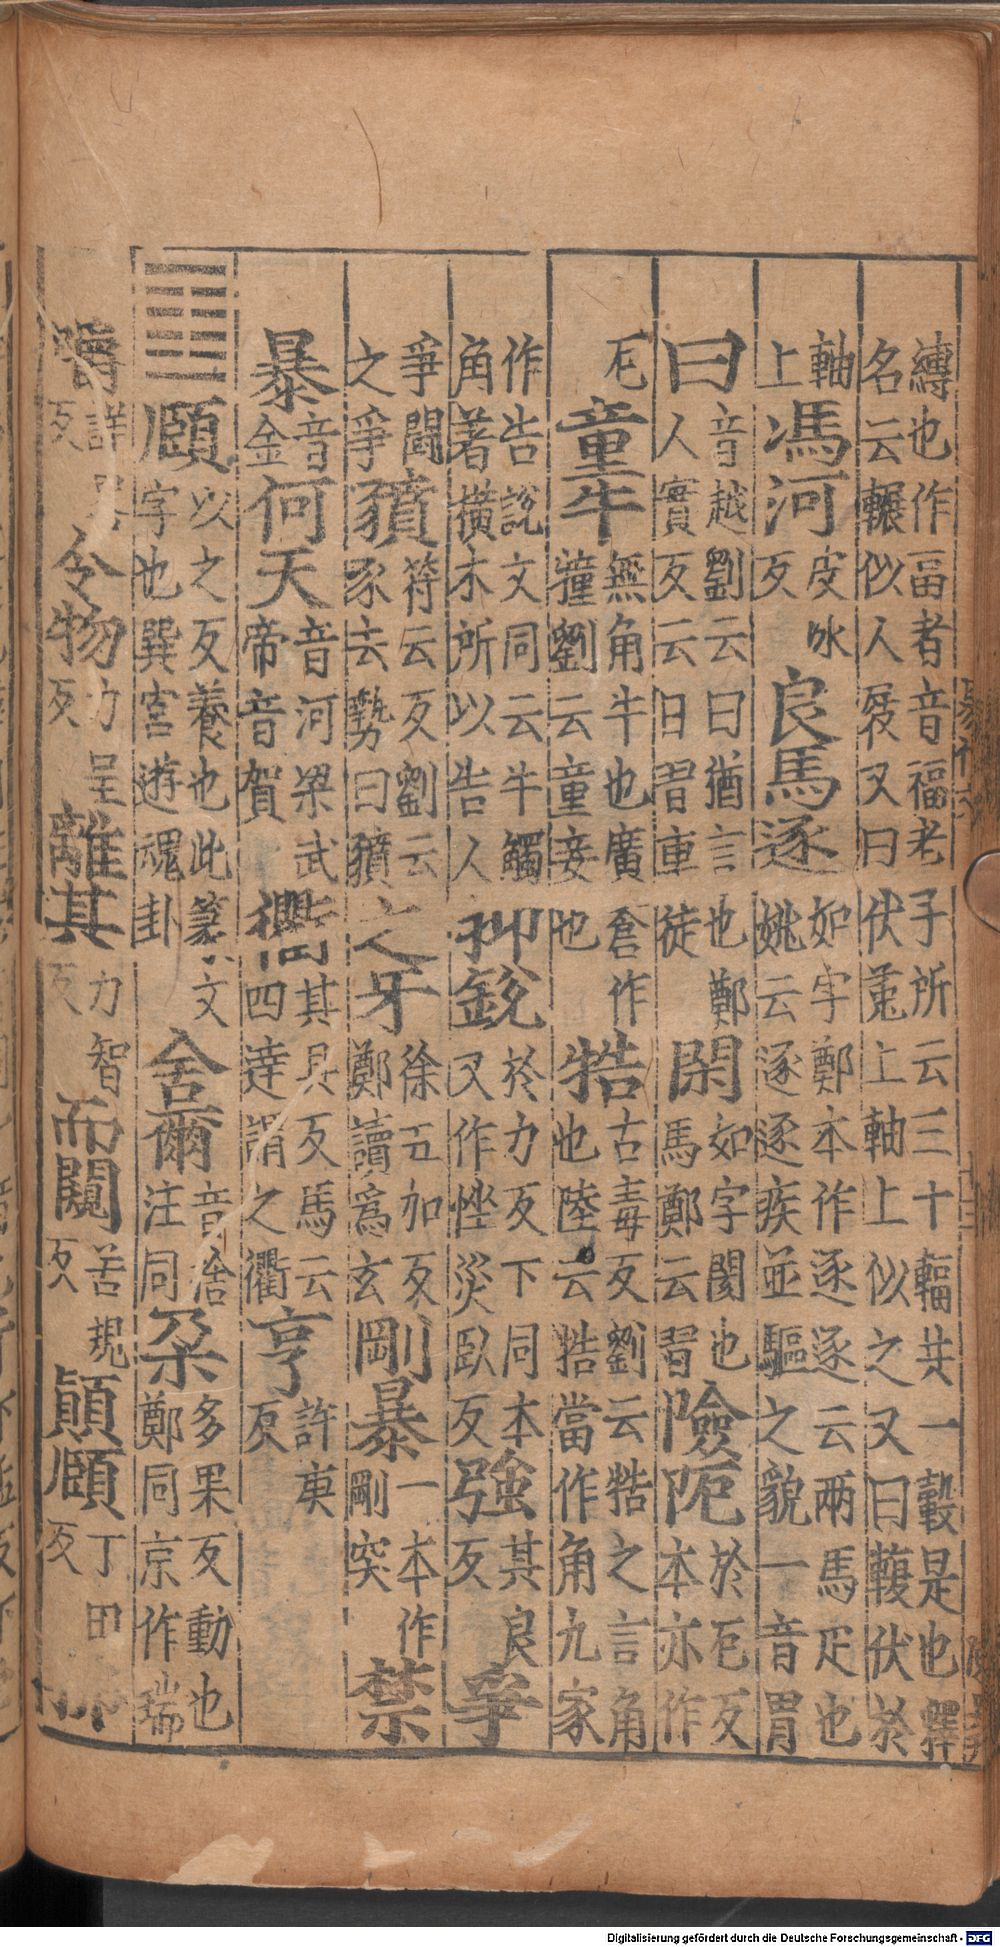 縳也作畐者音福老子所云三十輻共一轂是也釋
名云輾似人屐又曰伏菟上軸上似之又曰輹伏於
軸上馮河皮冰反良馬逐如字鄭本作逐逐云兩馬疋也姚云逐逐疾並驅之貌一音胃
曰音越劉云曰猶言也鄭人實反云日習車徒閑如字閡也馬鄭云習險阨於厄反本亦作
厄童牛無角牛也廣倉作犝劉云童妾也牿古毒反劉云牿之言角也陸云牿當作角九家
作告說文同云牛觸角著橫木所以告人抑銳於力反下同本又作挫災臥反強其良反爭
爭鬪之爭豶符云反劉云豕去勢曰豶之牙徐五加反鄭讀爲玄剛暴一本作剛突禁
暴音金何天音河梁武帝音賀衢其具反馬云四達謂之衢亨許庚反
頤以之反養也此篆文字也巽宮遊魂卦舍爾音捨注同朶多果反動也鄭同京作瑞
嚼詳反令物力呈反離其力智反而闚苦規反顚頤丁田反
Digitalisierung gefördert durch die Deutsche Forschungsgemeinschaft - DFG